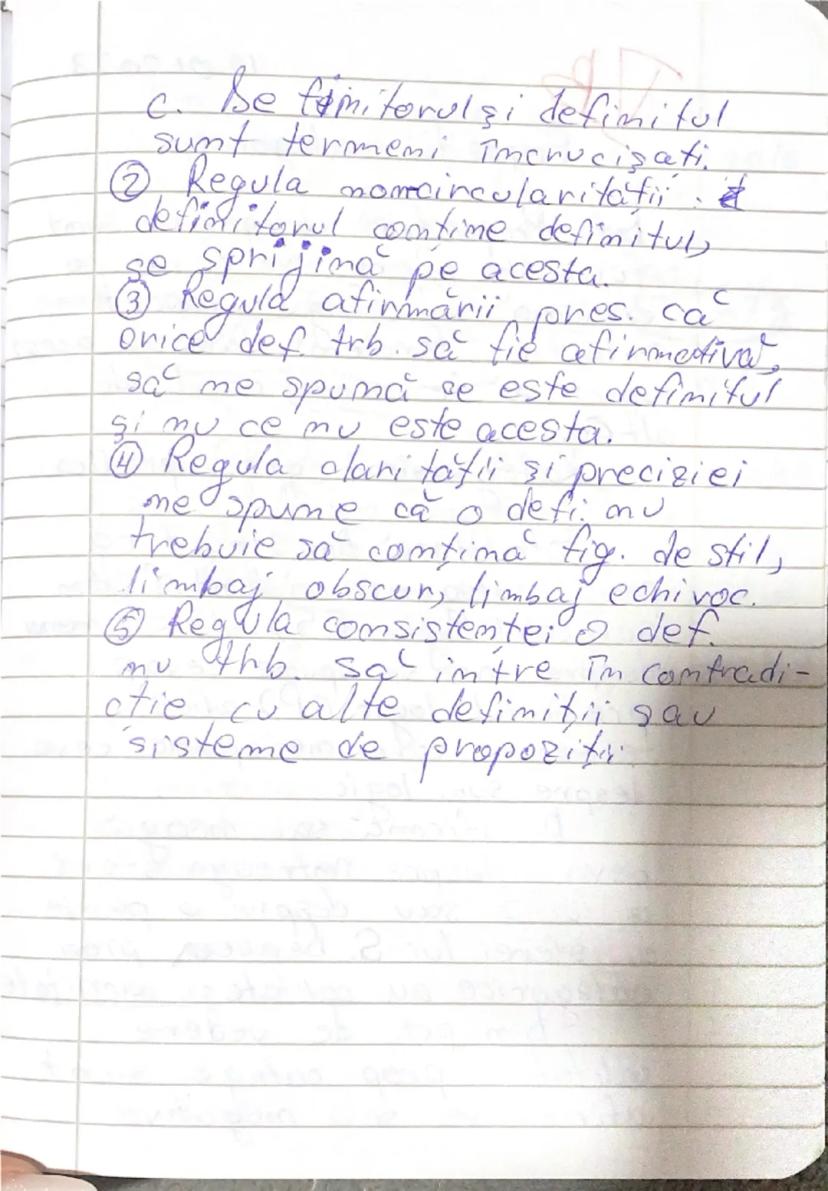 c. Definitorul și definitul
sunt termeni încrucișați.
② Regula noncircularității:
definitorul conține definitul,
se sprijină pe acesta.
③ Regula afirmării pres. că
orice def. trb. să fie afirmativă,
să ne spună ce este definitul
și nu ce nu este acesta.
④ Regula clarității și preciziei
ne spune că o defi. nu
trebuie să conțină fig. de stil,
limbaj obscur, limbaj echivoc.
⑤ Regula consistenței O def.
nu trb. să intre în contradi-
cție cu alte definiții sau
sisteme de propoziții